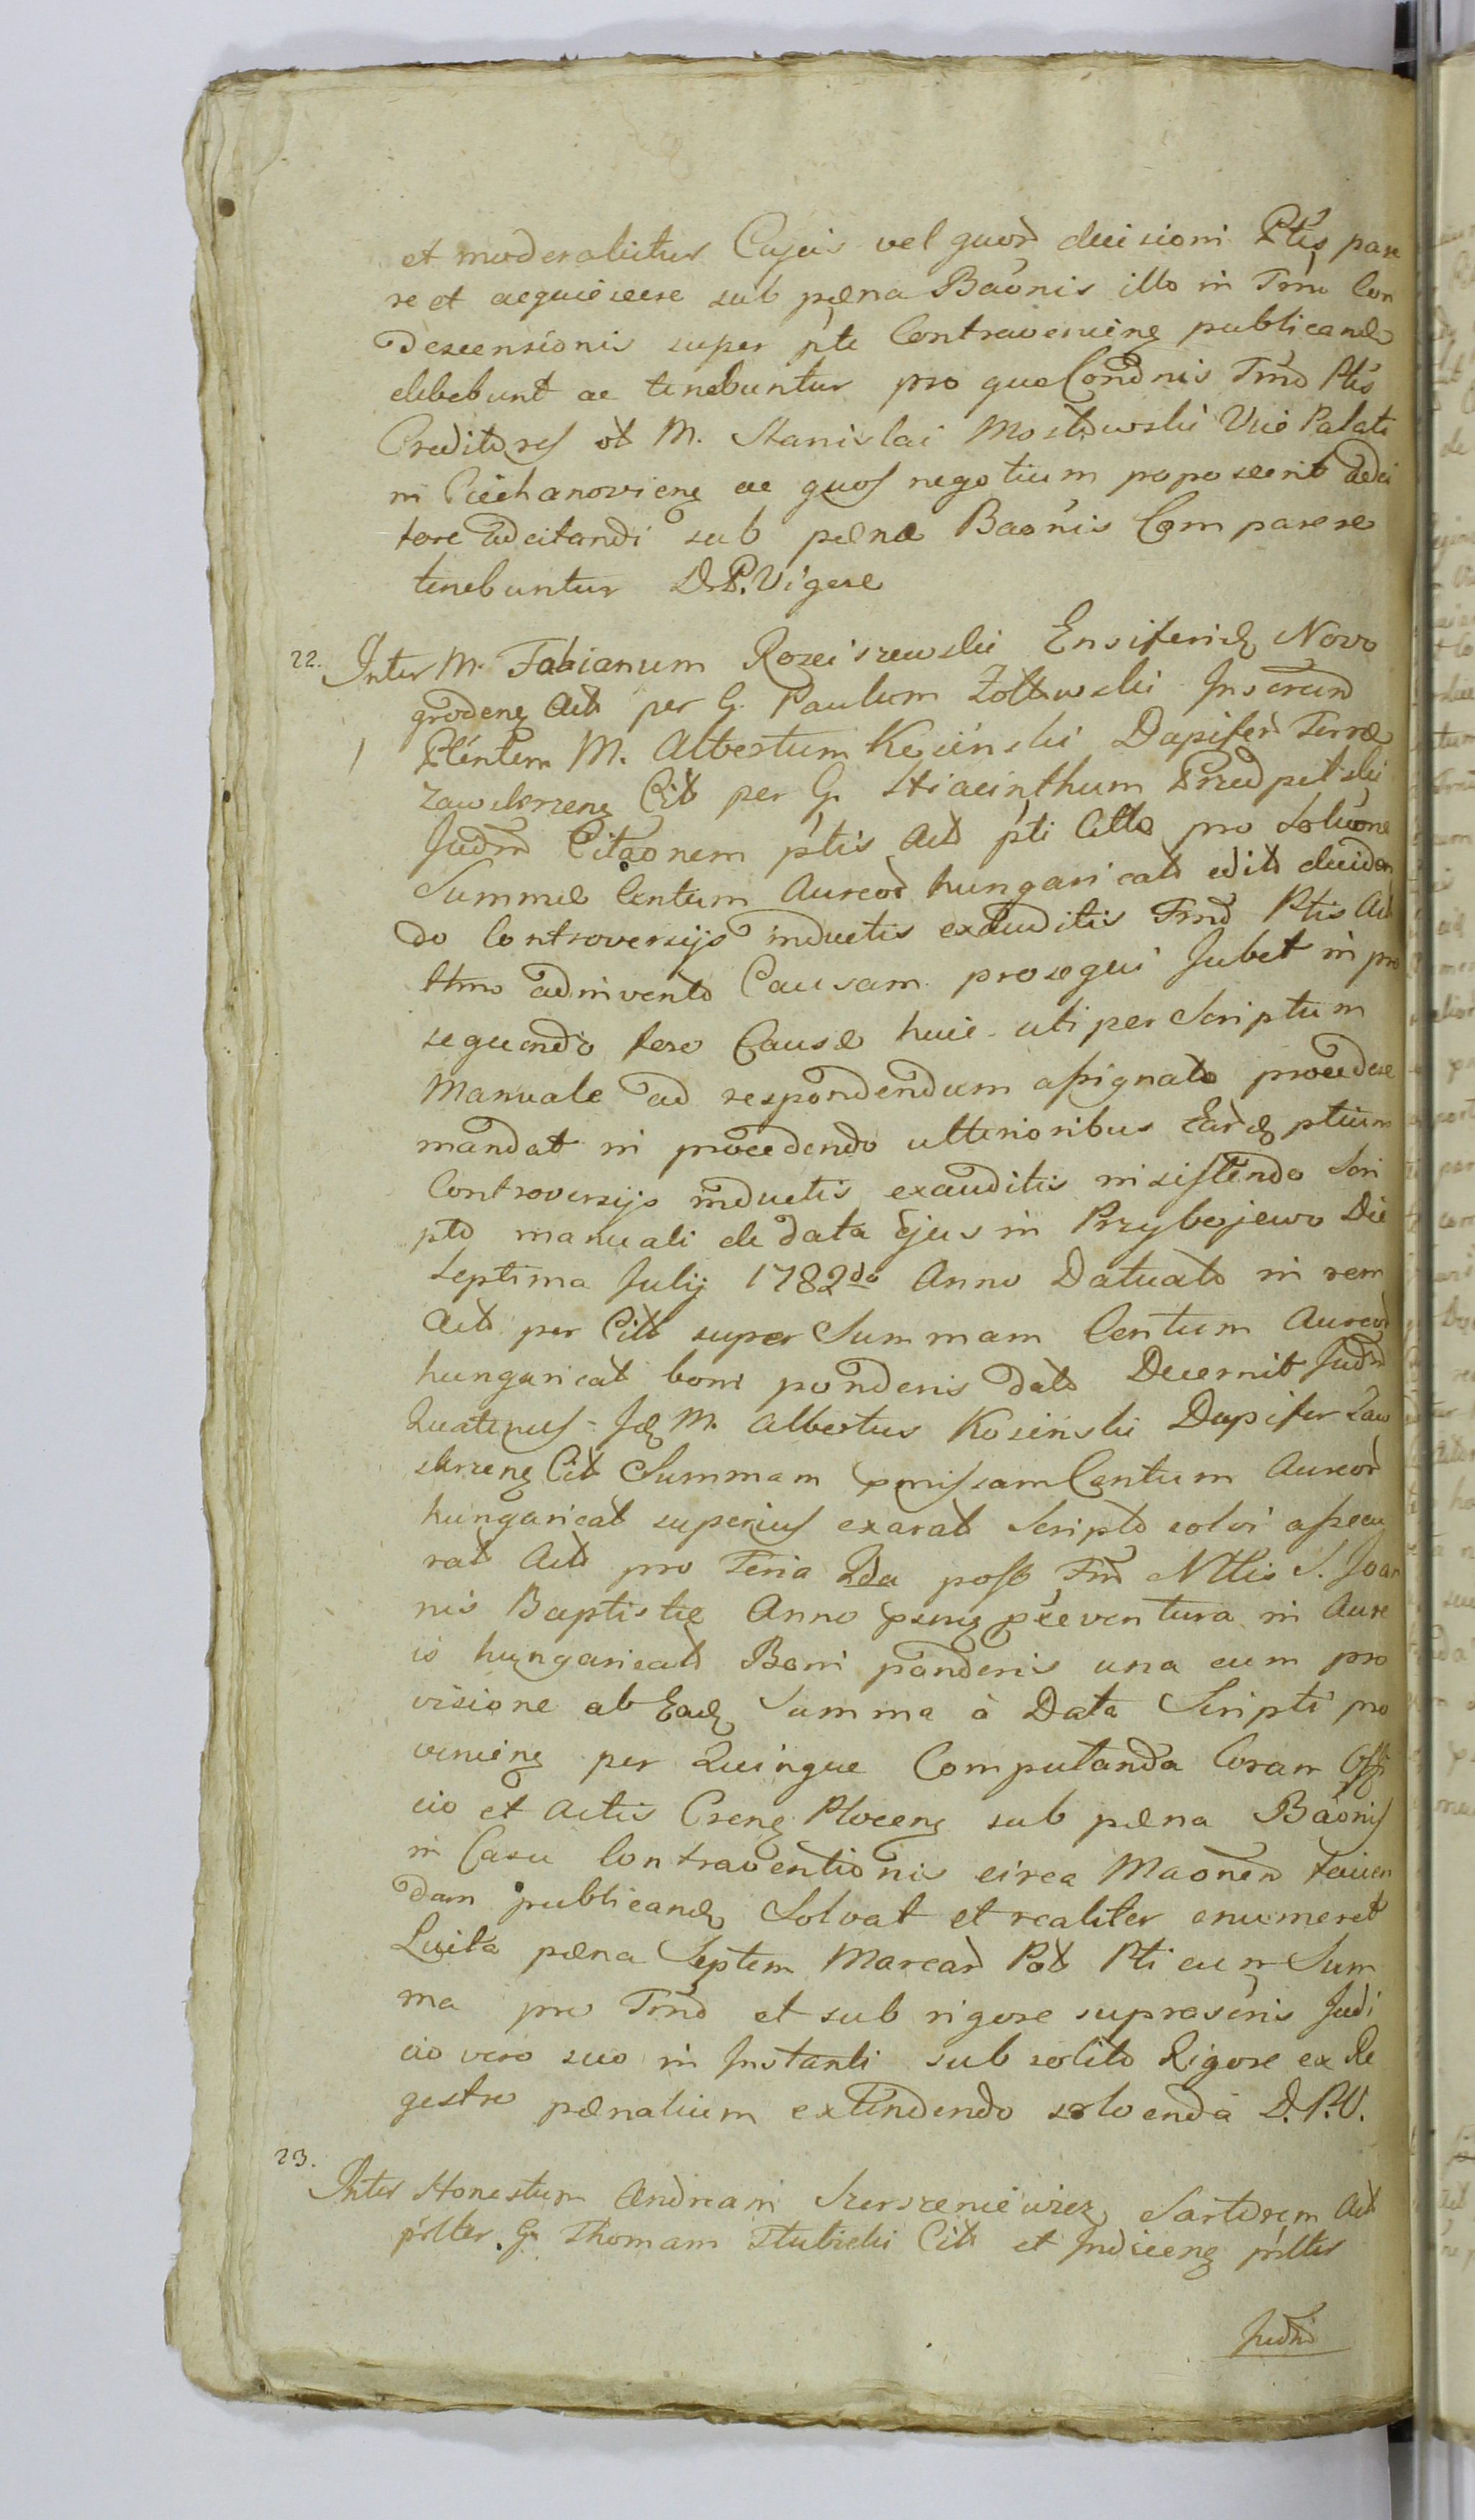 et moderabitur Cujus vel quor̃ decisioni Ptes pare
re et acquiescere sub pæna Bãonis illo in Trno Con
descensionis super pte Contravenienẽ publicand
debebunt ac tenebuntur pro quo Condnis Trno Ptes
Creditores et M. Stanislai Mostowski Vice Palati
ni Ciechanoviens ac quos negotium poposcerit
adcitandi sub pæna Baonis Comparere
tenebuntur D.P. Vigore
22. Inter M. Fabianum Rościszewski Ensiferid Novo
grodens Act per G. Paulum Żołtowski
Pléntem M. Albertum Kosinski Dapiferũ Terræ
Zawskrzens Cit per G. Hiacinthum Przedpelski
Judm Citãonem ptis Act pti Citto pro Solũone
Summæ Centum Aureor̃ hungaricalũ edito deciden
do Controversijs inductis exauditis Trno Ptis Act
ttmo adinvento Causam prosequi Jubet in pro
sequendo fere Causæ huic uti per Scriptum
Manuale ad respondendum assignato procedere
mandat in procedendo ulterioribus Earũd ptium
Controversijs inductis exauditis insistendo Scri
pto manuali de data Ejus in Przybojewo Die
Septima Julij 1782do Anno Datuato in rem
Act per Citt super Summam Centum Aureor̃
hungarical boni ponderis dato Decernit Judm
Quatenus Id M. Albertus Kosinski Dapifer Zaw
skrzens Cit Summam pmissam Centum Aureor̃
hungarical superius exarat Scripto solvi assecu
rat Act pro Feria 2da post Fm Nttis S. Joan
nis Baptistæ Anno præventura in Aure
is hungaricalũ Boni ponderis una cum pro
visione ab Ead Summa à Data Scripti pro
veniens per Quinque Computanda Coram Offi
cio et Actis Crens Plocens sub pæna Bãonis
in Casu Contraventionis circa
dam publicand Solvat et realiter enumeret
Luita pæna Septem Marcarũ Pot Pti cum Sum
ma pro Trno et sub rigore suprascris Judi
cio vero suo in Instanti sub solito Rigore ex Re
gestro pænalium extendendo solvenda D.P.V.
23. Inter Honestum Andream Szerszeniewicz Sartorem Act
prlter G. Thomam Stubicki Citt et Indicens prlter
Judm